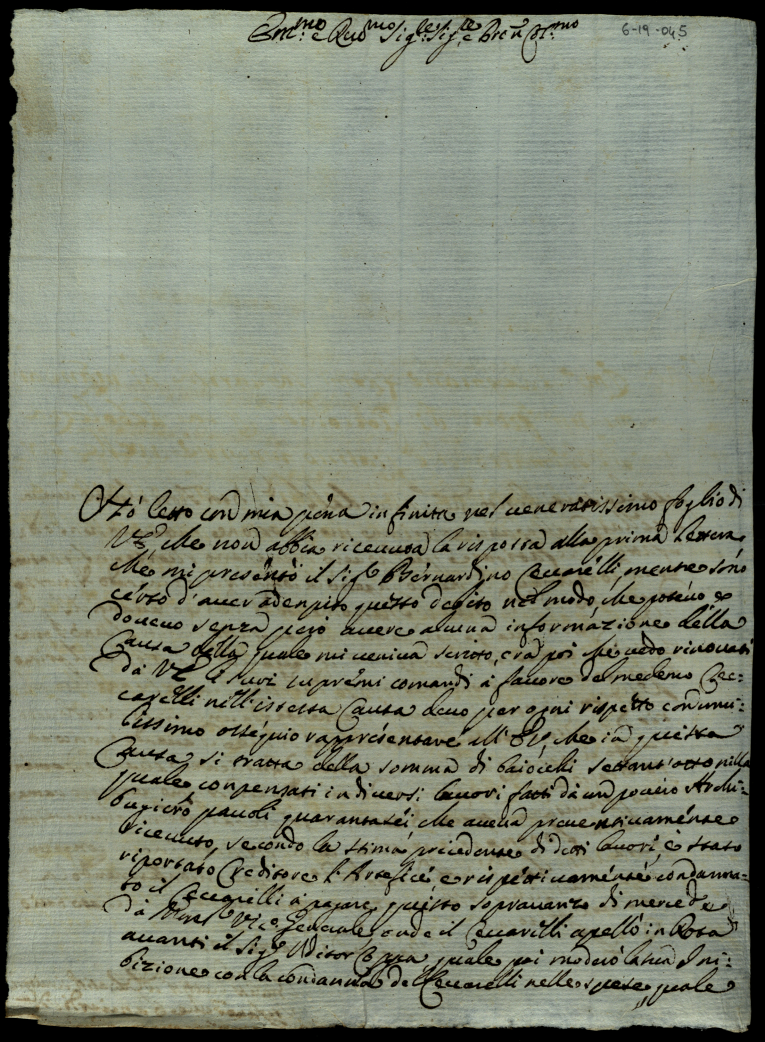 Em.mo e Reu.mo Sig.re Sig.re e Pron Col.mo
6-19-045
Hò letto con mia pena infinita nel veneratissimo foglio di
V.E. che non abbia riceuuta la risposta alla prima lettera
che mi presentò il Sig.r Bernardino Ceccarelli, mentre sono
certo d'auer adenpito questo debito nel modo, che poteuo e
doueuo senza però auere alcuna informazione della
Causa della quale mi ueniua scritto, ora poi che uedo rinouati
da V.E. i suoi supremi comandi a fauore del medemo Cec:
carelli nell'istessa Causa deuo per ogni rispetto con umi:
lissimo ossequio rappresentare all'E.V. che in questa
Causa si tratta della somma di baiocchi settant'otto nella
quale conpensati in diuersi lauori fatti da un pouero Archi:
bugiero pauoli quarantasei, che aueua preuentiuamente
riceuuto, secondo la stima precedente di detti lauori, è stato
riportato Creditore l'Artefice, e rispettiuamente condanna:
to il Ceccarelli a pagare questo soprauanzo di mercede
da Vic.o Generale onde il Ceccarelli apellò in Rota
auanti il Sig.r Uditor quale poi moderò la sua Ini:
bizione con la condanna del Ceccarelli nelle spese, quale